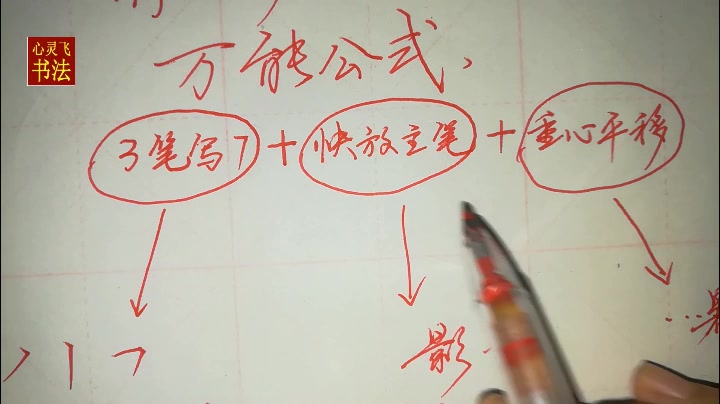 心灵飞
书法
万能公式、
3笔写7 + 快放主笔 + 重心平移
影